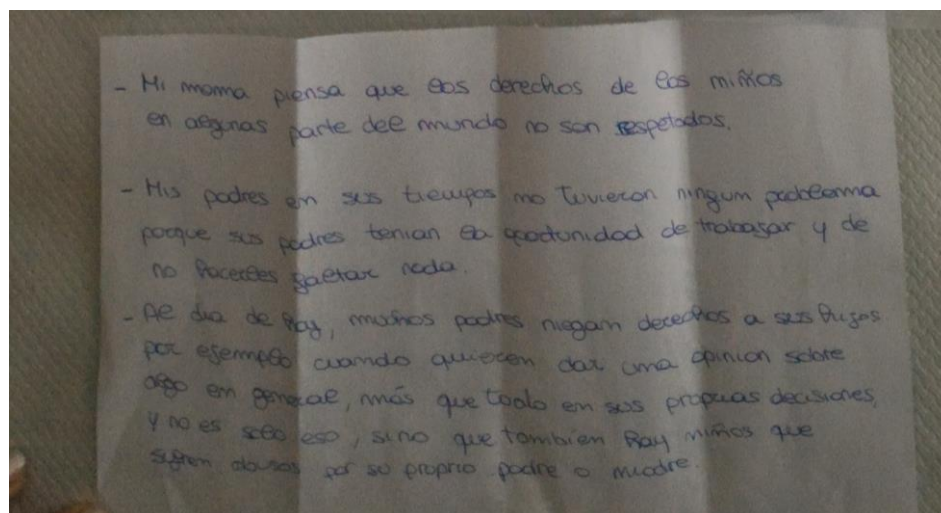 - Mi mamma piensa que los derechos de los niños
en algunas parte del mundo no son respetados.
- Mis padres en sus tiempos no tuvieron ningum problemma
porque sus padres tenian la oportunidad de trabajar y de
no hacerles faltar nada.
- Al dia de hoy, muchos padres niegam derechos a sus hijos
por ejemplo cuando quieren dar uma opinion sobre
algo em general, más que todo en sus propias decisiones,
y no es solo eso, sino que tambien hay niños que
sufren abusos por su proprio padre o madre.